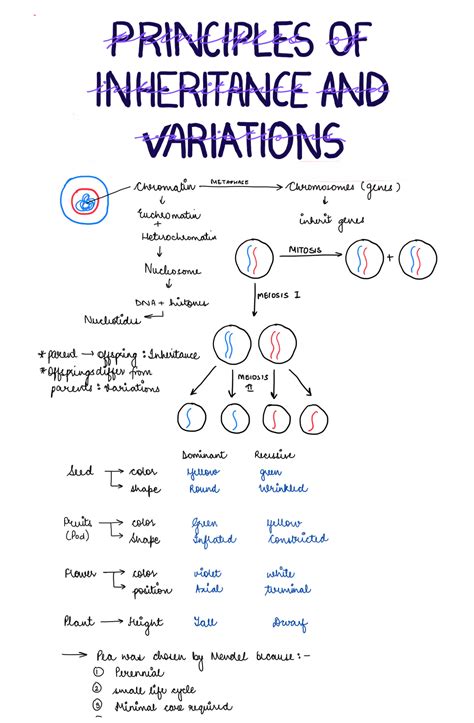 PRINCIPLES OF
INHERITANCE AND
VARIATIONS
Chromatin METAPHASE Chromosomes (genes)
Euchromatin inherit genes
+
Heterochromatin
MITOSIS
+
Nucleosome
MEIOSIS I
DNA + histones
Nucleotides
* parent → Offspring : Inheritance
* Offsprings differ from
parents : variations
MEIOSIS
II
Dominant Recissive
Seed → color Yellow green
→ shape Round Wrinkled
Fruits → color Green yellow
(Pod) → Shape Inflated Constricted
Flower → color violet white
→ position Axial terminal
Plant → Height Tall Dwarf
→ Pea was chosen by Mendel because :-
① Perennial
② small life cycle
③ Minimal care required